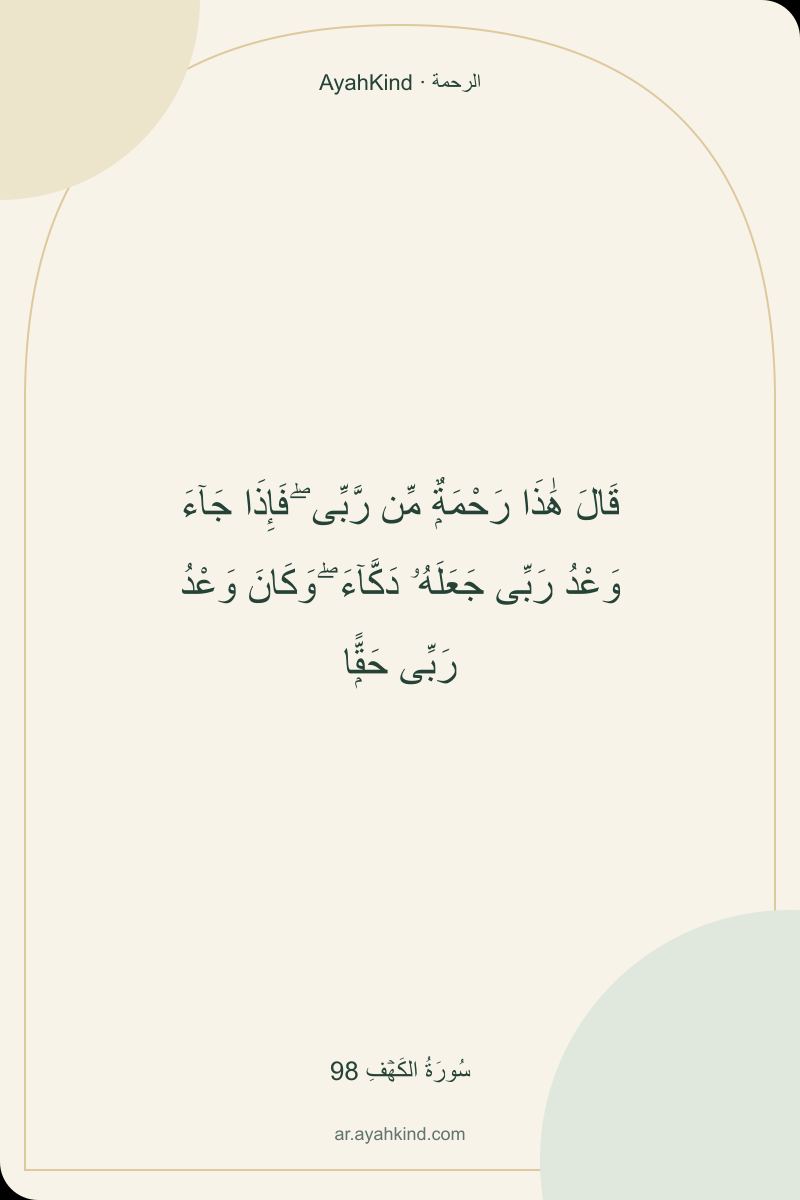 AyahKind · الرحمة
قَالَ هَٰذَا رَحْمَةٌۭ مِّن رَّبِّى ۖ فَإِذَا جَآءَ
وَعْدُ رَبِّى جَعَلَهُۥ دَكَّآءَ ۖ وَكَانَ وَعْدُ
رَبِّى حَقًّۭا
سُورَةُ الكَهۡفِ 98
ar.ayahkind.com